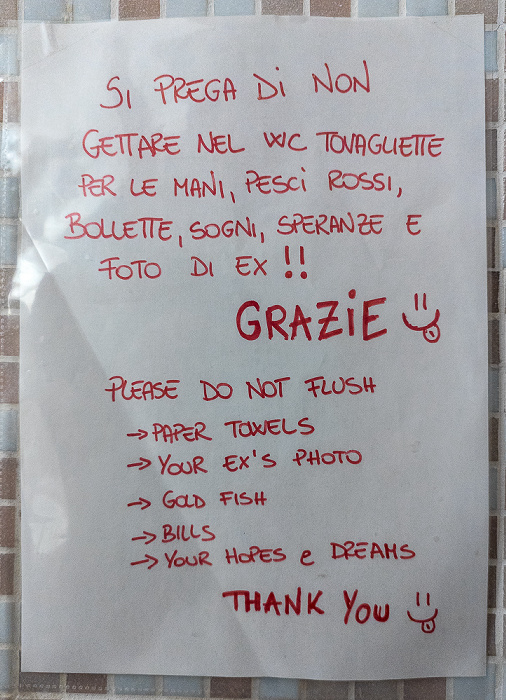 SI PREGA DI NON
GETTARE NEL WC TOVAGLIETTE
PER LE MANI, PESCI ROSSI,
BOLLETTE, SOGNI, SPERANZE E
FOTO DI EX !!
GRAZIE
PLEASE DO NOT FLUSH
→ PAPER TOWELS
→ YOUR EX'S PHOTO
→ GOLD FISH
→ BILLS
→ YOUR HOPES e DREAMS
THANK YOU